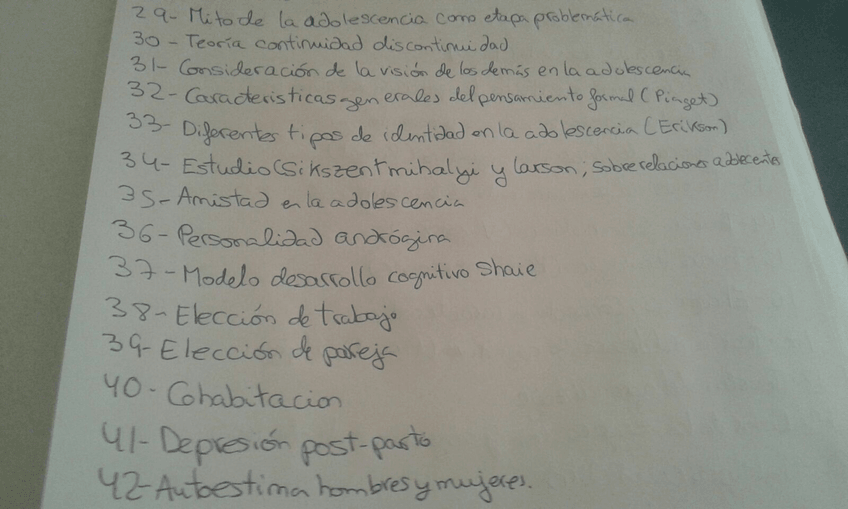 29- Mito de la adolescencia como etapa problemática
30- Teoría continuidad discontinuidad
31- Consideración de la visión de los demás en la adolescencia
32- Caracteristicas generales del pensamiento formal (Piaget)
33- Diferentes tipos de identidad en la adolescencia (Erikson)
34- Estudio Csikszentmihalyi y Larson; sobre relaciones adolecentes
35- Amistad en la adolescencia
36- Personalidad andrógina
37- Modelo desarrollo cognitivo Shaie
38- Elección de trabajo
39- Elección de pareja
40- Cohabitacion
41- Depresión post-parto
42- Autoestima hombres y mujeres.